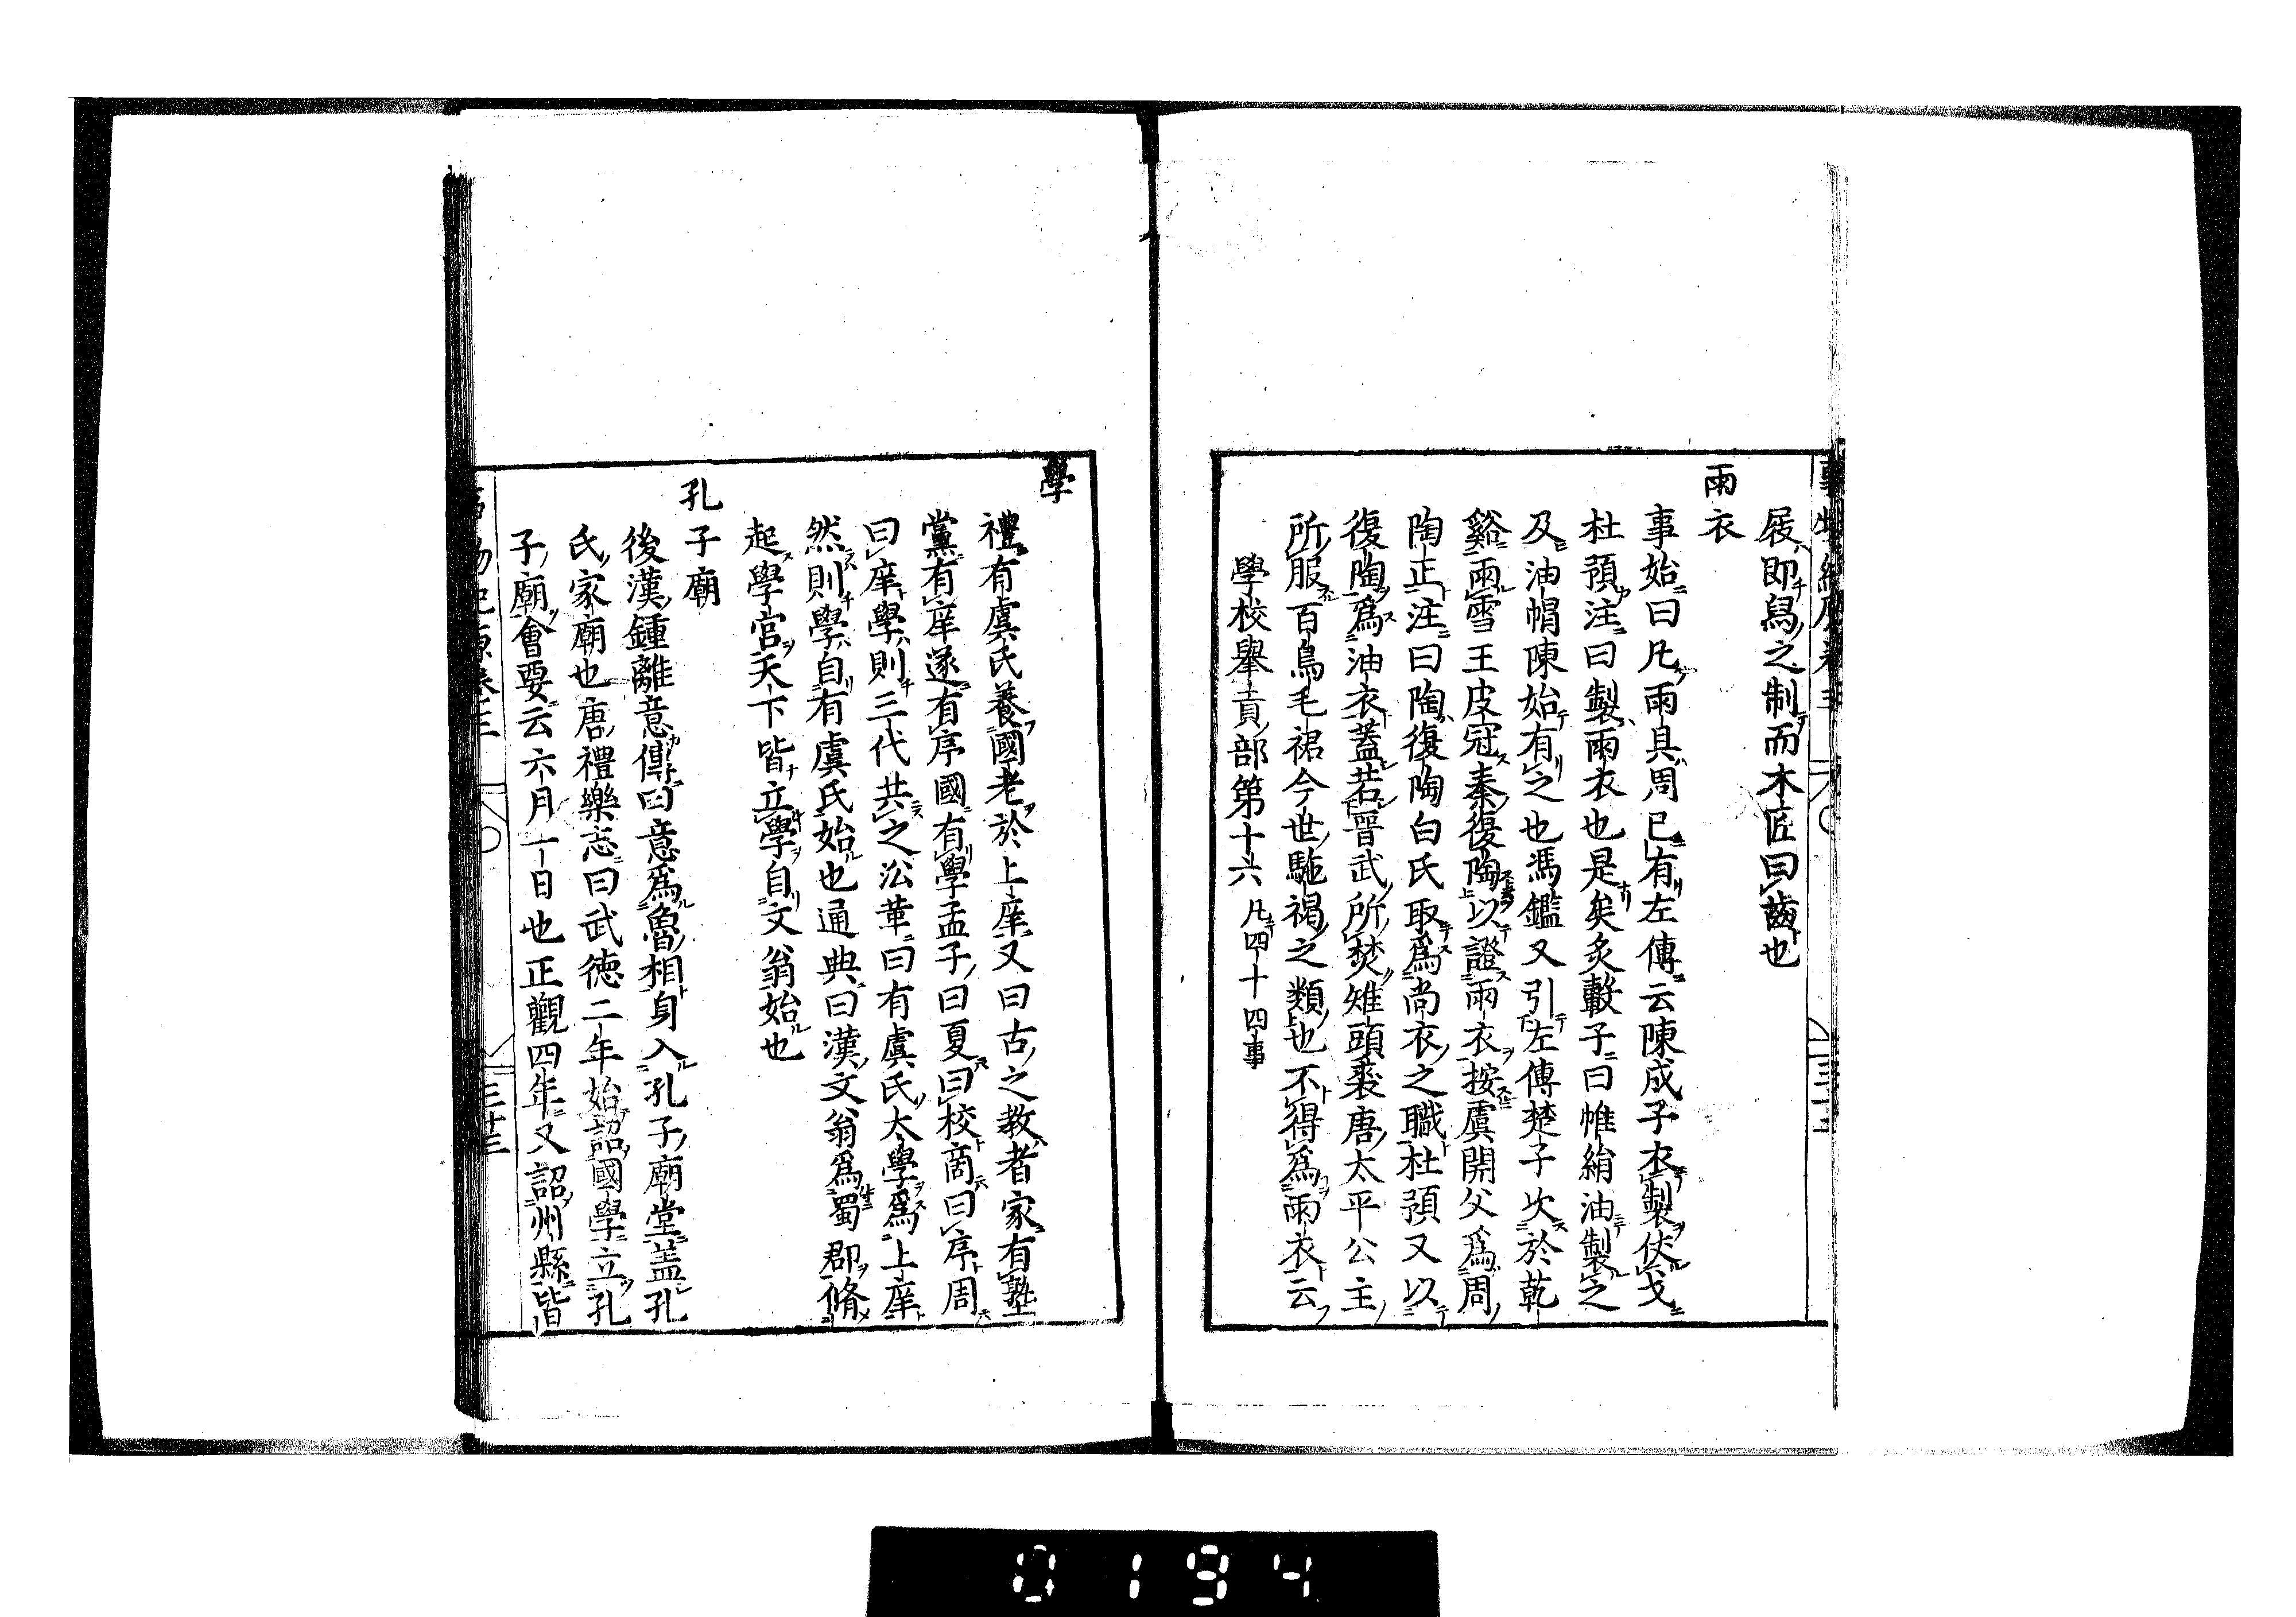 屐即舄之制而木匠曰齒也
雨衣
事始曰凡雨具周已有左傳云陳成子衣製仗戈
杜預注曰製雨衣也是矣炙轂子曰帷絹油製之
及油帽陳始有之也馮鑑又引左傳楚子次於乾
谿雨雪王皮冠秦復陶以證雨衣按虞閼父爲周
陶正注曰陶復陶白氏取爲尚衣之職杜預又以
復陶爲油衣蓋若晉武所焚雉頭裘唐太平公主
所服百鳥毛裙今世駞褐之類也不得爲雨衣云
學校舉貢部第十六 凡四十四事
學
禮有虞氏養國老於上庠又曰古之教者家有塾
黨有庠遂有序國有學孟子曰夏曰校商曰序周
曰庠學則三代共之㳂革曰有虞氏大學爲上庠
然則學自有虞氏始也通典曰漢文翁爲蜀郡脩
起學官天下皆立學自文翁始也
孔子廟
後漢鍾離意傳曰意爲魯相身入孔子廟堂蓋孔
氏家廟也唐禮樂志曰武德二年始詔國學立孔
子廟會要云六月一日也正觀四年又詔州縣皆
事物紀原卷三
三十三
0194